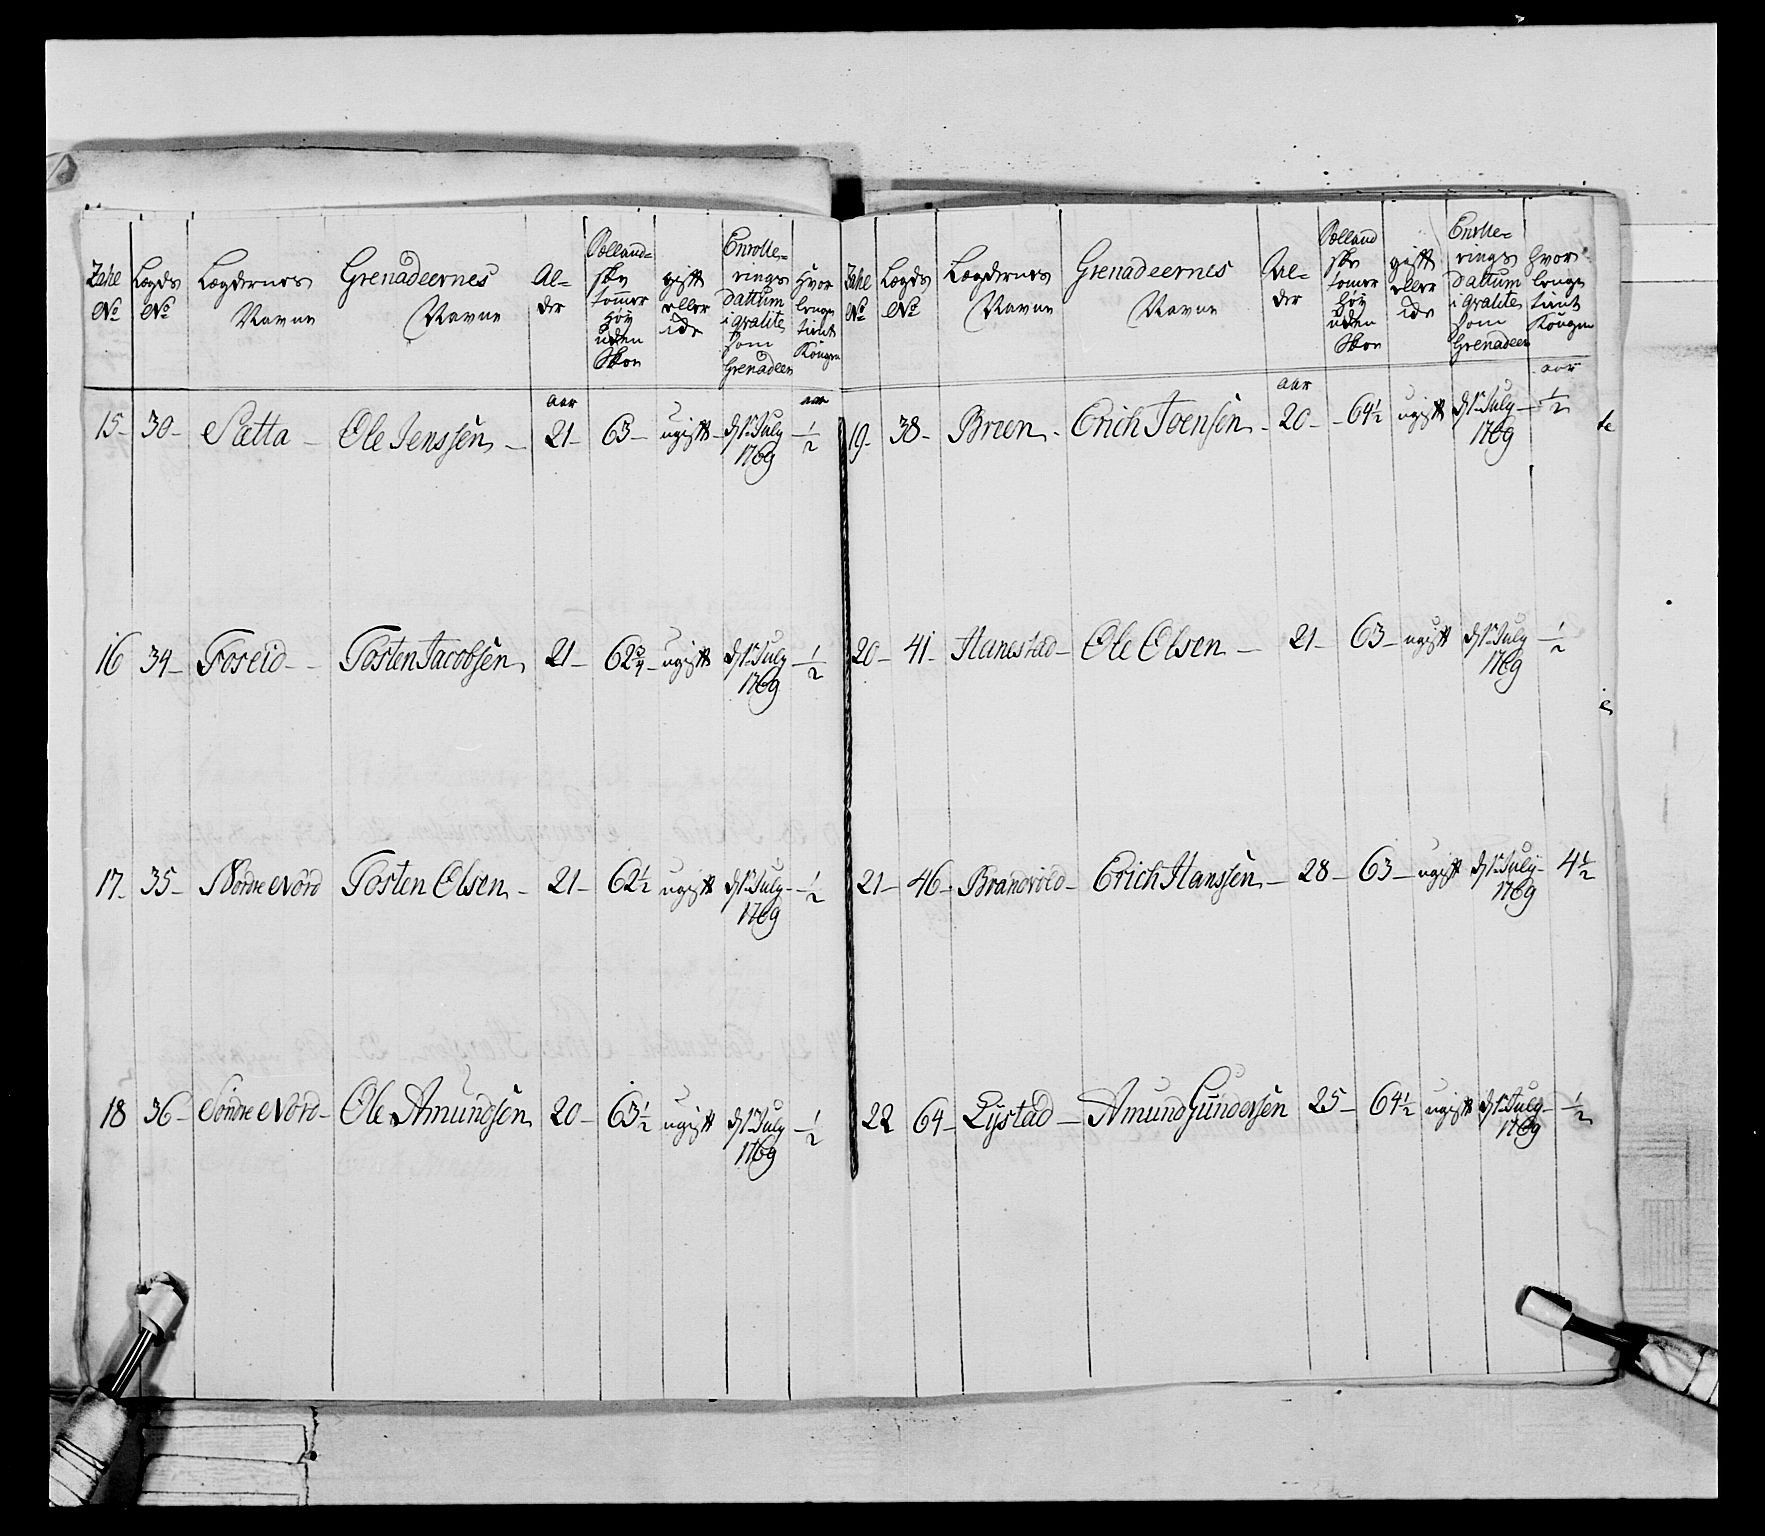 Zahl No
Legds No
Lægdernes Navne
Grenadeernes Navne
Al-der
Sælland-ske tommer Höy uden Skoe
gift eller ide
Enrolle-rings dattum i qvalite som Grenadeer
Hvor lenge tient Kongen
15- 30- Sætta - Ole Jenssen - aar 21- 63- ugift d 1ste July 1769 aar ½
16 34- Foseid - Tosten Jacobsen 21- 62¾- ugift d 1ste July 1769 ½
17- 35- Nordre Nord Tosten Olsen - 21- 62½ ugift d 1ste July 1769 ½
18 36- Söndre Nord - Ole Amundsen 20- 63½ ugift d 1ste July 1769 ½
Zahl No
Legds No
Lægdernes Navne
Grenadeernes Navne
Al-der
Sælland ske tomer Höy uden Skoe
gift eller ide
Enrolle-rings dattum i qvalite som Grenadeer
hvor lenge tient Kongen
19- 38- Breen - Erich Joensen - aar 20- 64½ ugift d 1ste July 1769 aar ½
20- 41- Hanestad - Ole Olsen - 21- 63- ugift d 1ste July 1769 ½
21- 46- Brandvold - Erich Hanssen - 28- 63- ugift d 1ste July 1769 4½
22 64- Lÿstad - Amund Gundersen 25- 64½ ugift d 1ste July 1769 ½